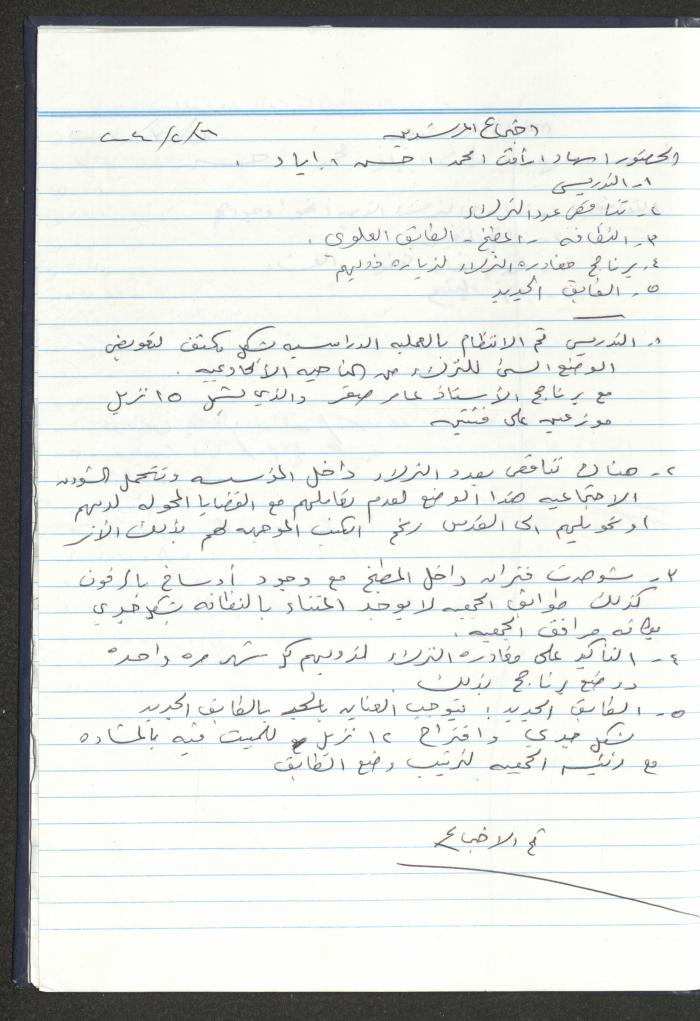 اجتماع المرشدين
الحضور: سهاد، رأفت، محمد، حسن، اياد.
١- التدريس
٢- تناقص عدد النزلاء
٣- النظافه - المطبخ - الطابق العلوي.
٤- برنامج مغادره النزلاء لزياره ذويهم
٥- الطابق الجديد
١- التدريس تم الانتظام بالعمليه الدراسيه بشكل مكثف لتعويض
الوضع السيئ للنزلاء من الناحيه الأكاديميه.
مع برنامج الأستاذ عامر صقر والذي يشمل ١٥ نزيل
موزعين على فئتين
٢- هناك تناقص بعدد النزلاء داخل المؤسسه وتتحمل الشؤون
الاجتماعيه هذا الوضع لعدم تعاملهم مع القضايا المحوله لديهم
او تحويلهم الى القدس رغم الكتب الموجهه لهم بذلك الأمر
٣- شوهدت فئران داخل المطبخ مع وجود أوساخ بالرفوف
كذلك طوابق الجمعيه لا يوجد اعتناء بالنظافه بشكل جدي
بكافه مرافق الجمعيه.
٤- التأكيد على مغادره النزلاء لذويهم كل شهر مره واحده
ووضع برنامج بذلك
٥- الطابق الجديد: يتوجب العنايه بالطابق الجديد
بشكل جدي واقتراح ١٢ نزيل للمبيت فيه
مع رئيس الجمعيه لترتيب وضع الطابق
تم الاجتماع